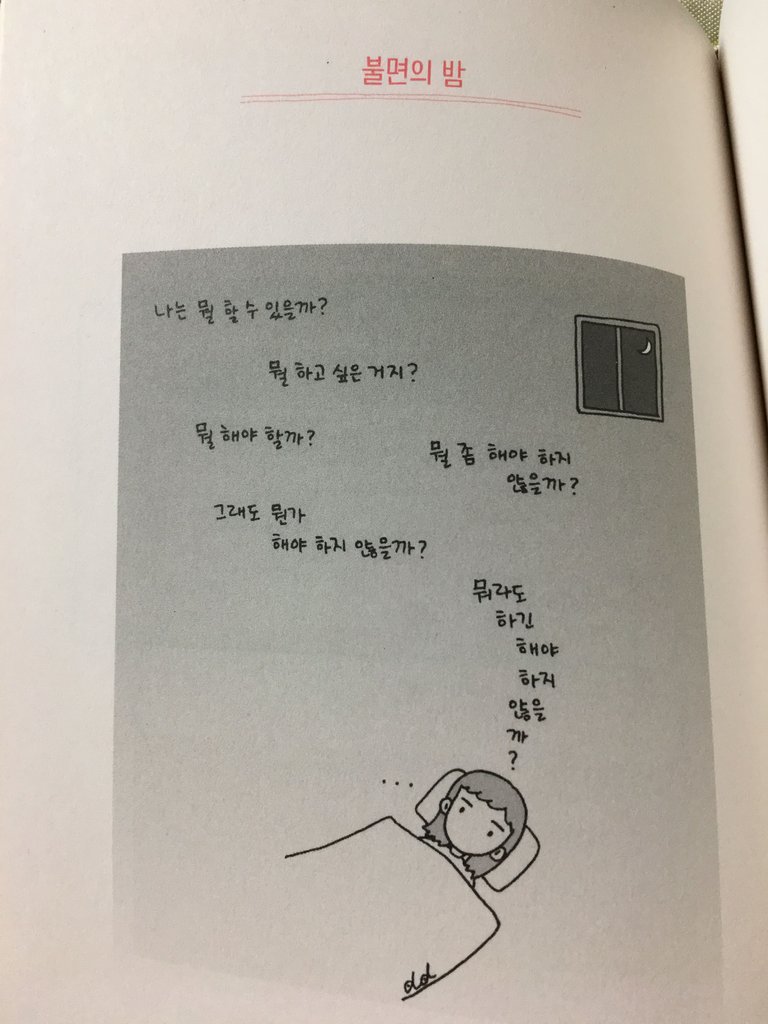 불면의 밤
나는 뭘 할 수 있을까?
뭘 하고 싶은 거지?
뭘 해야 할까?
뭘 좀 해야 하지
않을까?
그래도 뭔가
해야 하지 않을까?
뭐라도
하긴
해야
하지
않을
까
?
...